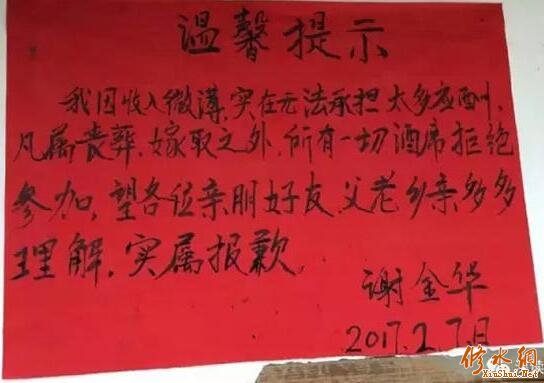 温馨提示
我因收入微薄,实在无法承担太多应酬,
凡属丧葬、嫁取之外,所有一切酒席拒绝
参加,望各位亲朋好友、父老乡亲多多
理解,实属报歉。
谢金华
2017.2.7日
修水网
XiuShui.Net